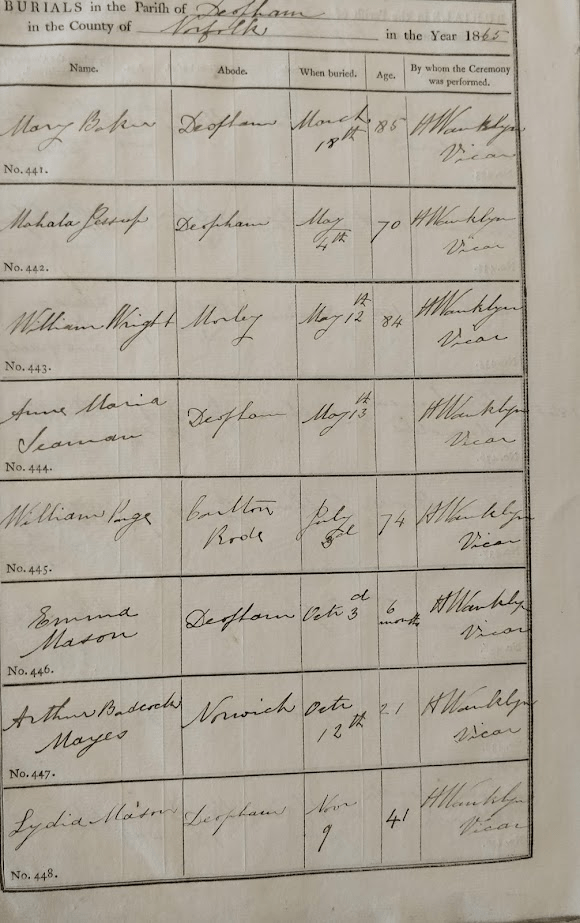 BURIALS in the Parish of Deopham
in the County of Norfolk in the Year 1865
Name. Abode. When buried. Age. By whom the Ceremony was performed.
Mary Baker Deopham March 18th 85 HWanklyn Vicar
No. 441.
Mahala Jessup Deopham May 4th 70 HWanklyn Vicar
No. 442.
William Wright Morley May 12th 84 HWanklyn Vicar
No. 443.
Anne Maria Seaman Deopham May 13th HWanklyn Vicar
No. 444.
William Page Carlton Rode July 3d 74 HWanklyn Vicar
No. 445.
Emma Mason Deopham Octr 3d 6 months HWanklyn Vicar
No. 446.
Arthur Badcock Mayes Norwich Octr 12th 21 HWanklyn Vicar
No. 447.
Lydia Mason Deopham Novr 9 41 HWanklyn Vicar
No. 448.